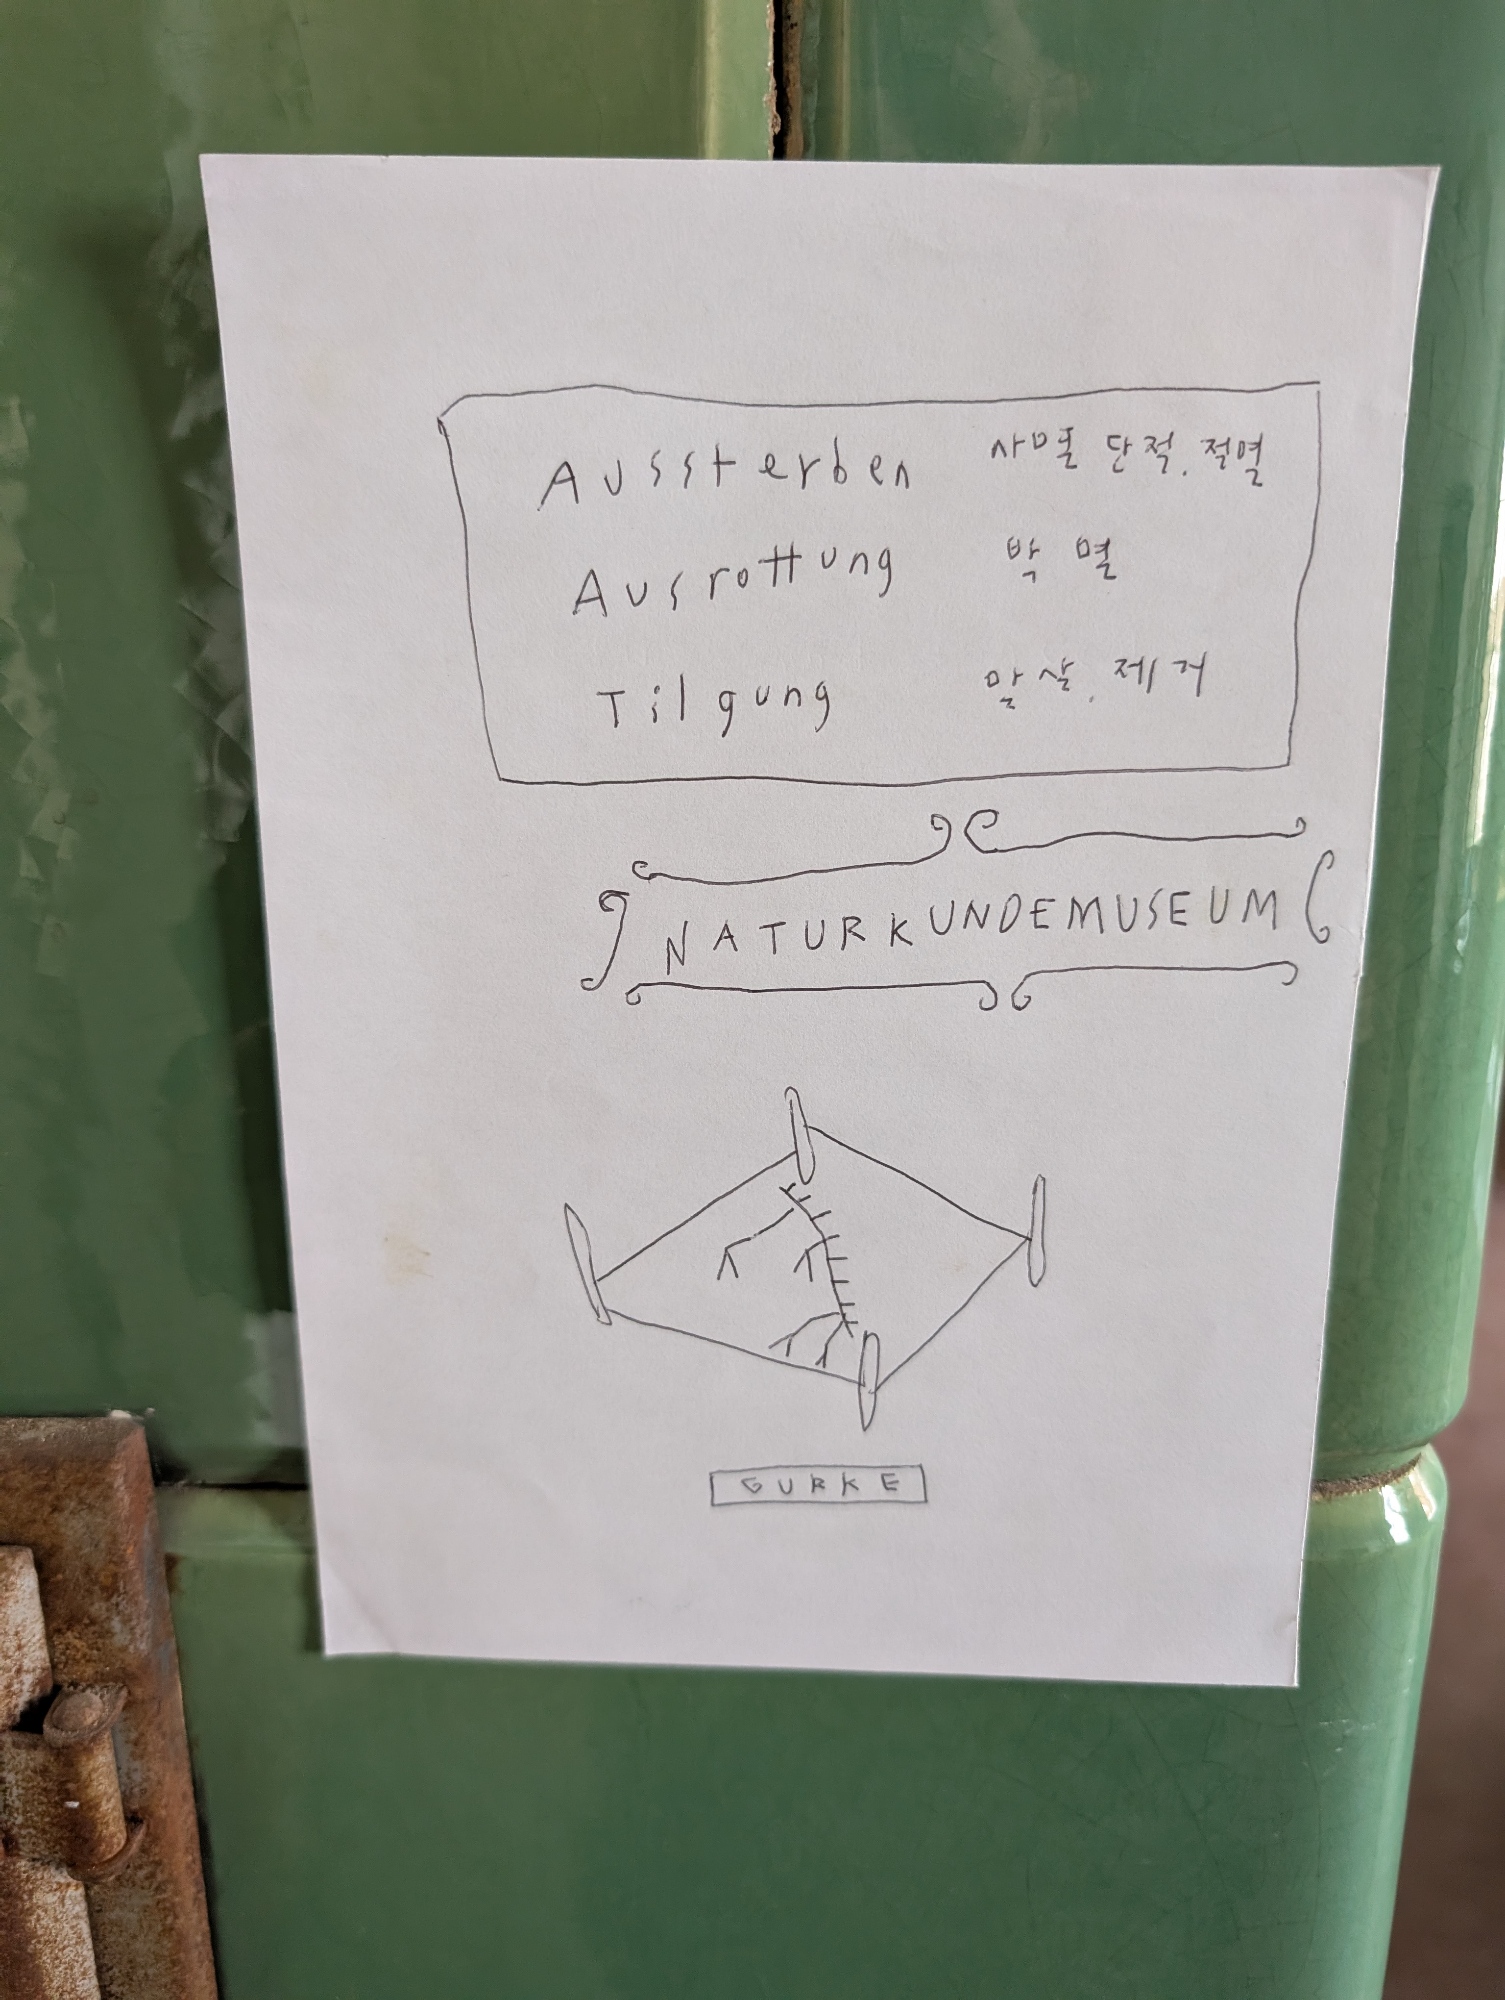 Aussterben 사멸 단적. 절멸
Ausrottung 박멸
Tilgung 말살. 제거
NATURKUNDEMUSEUM
GURKE